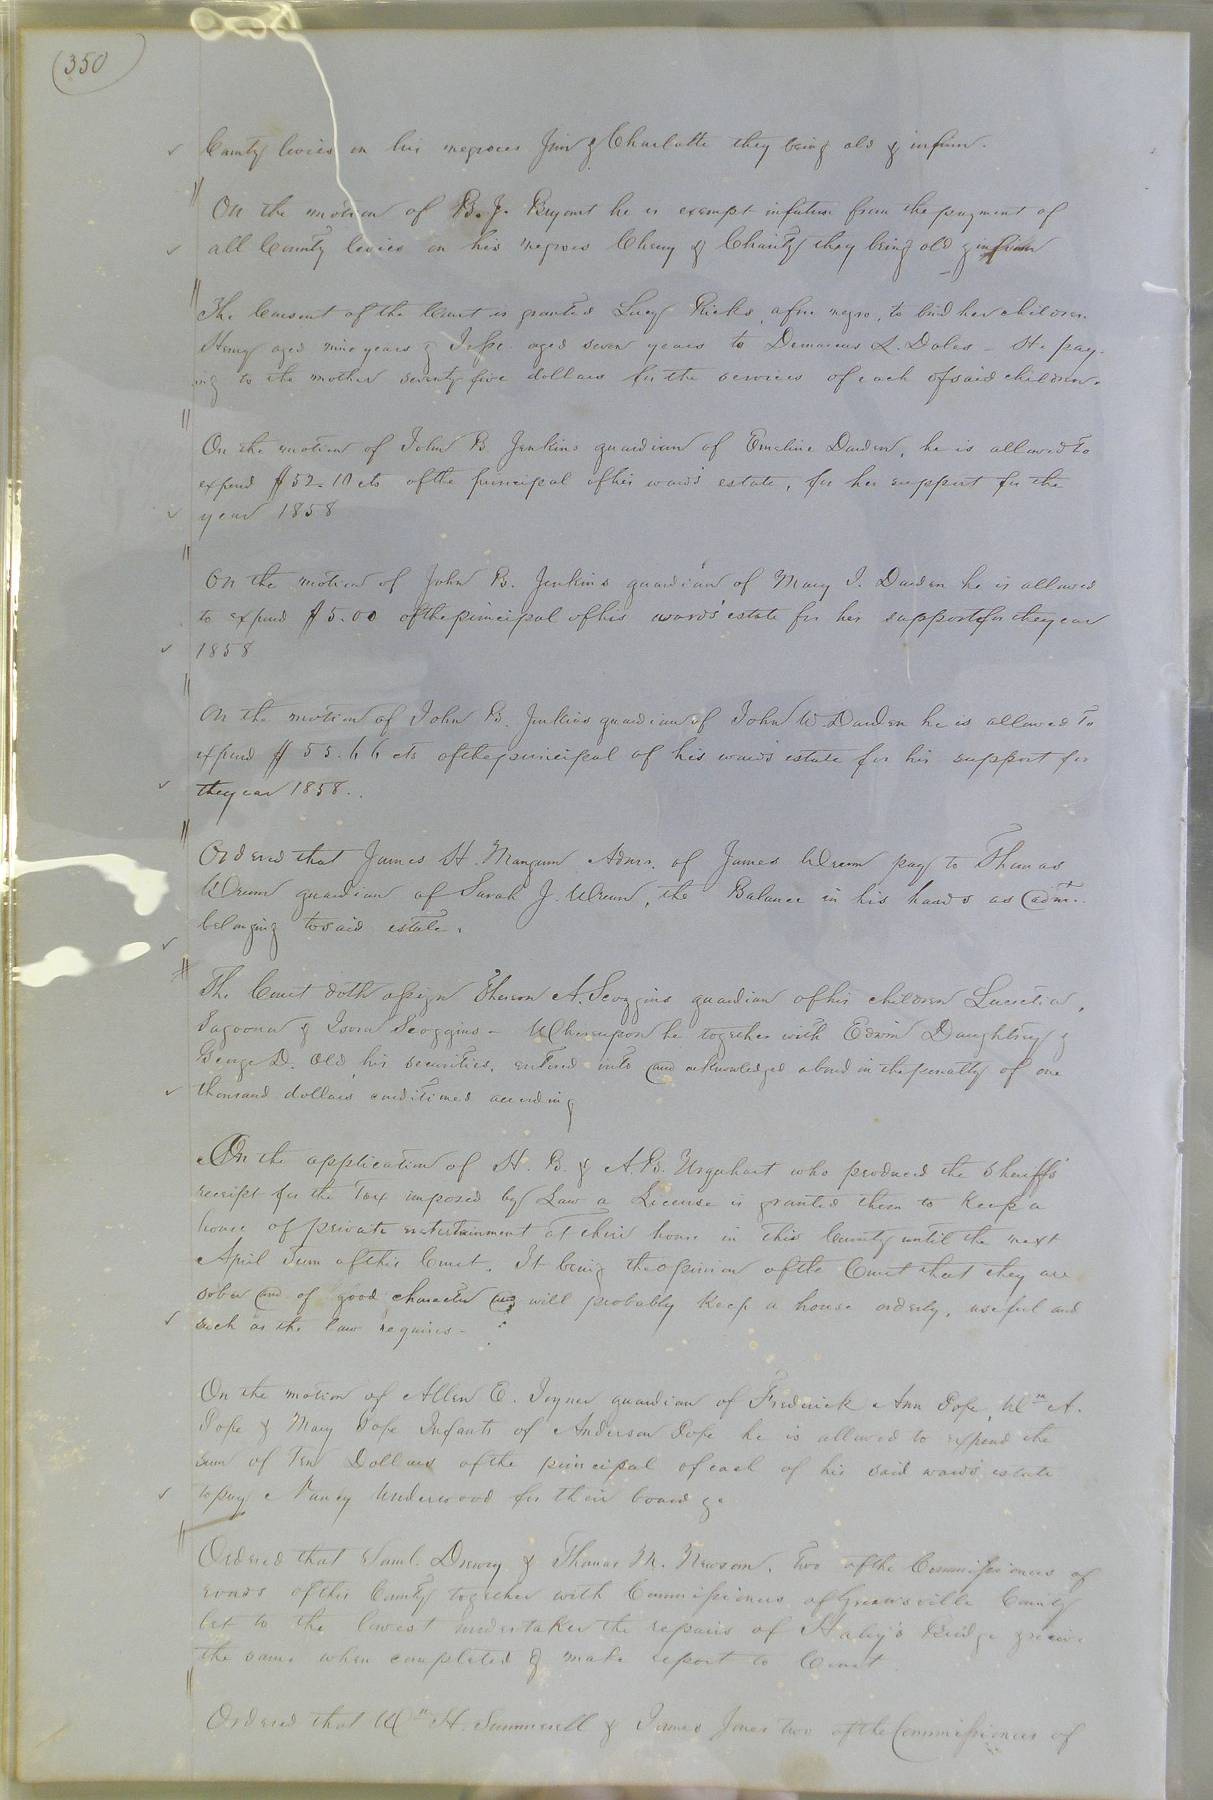 (350)
County levies on his negroes Jim & Charlotte they being old & infirm.
On the motion of B. J. Bryant he is exempt in future from the payment of
all County levies on his negroes Cherry & Charity they being old & infirm
The Consent of the Court is granted Lucy Ricks, a free negro, to bind her children
Henry aged nine years & Jesse aged seven years to Demarcus L. Doles - He pay-
ing to the mother seventy five dollars for the services of each of said children.
On the motion of John B Jenkins guardian of Emeline Darden, he is allowed to
expend $52.10 cts of the principal of his ward's estate, for her support for the
year 1858
On the motion of John B. Jenkins guardian of Mary J. Darden he is allowed
to expend $5.00 of the principal of his wards' estate for her support for the year
1858
On the motion of John B. Jenkins guardian of John W. Darden he is allowed to
expend $55.66 cts of the principal of his ward's estate for his support for
the year 1858..
Ordered that James H. Mangum Admr. of James Wrenn pay to Thomas
Wrenn guardian of Sarah J. Wrenn, the Balance in his hands as adm..
belonging to said estate.
The Court doth assign A. Scoggins guardian of his children Lucretia,
& Scoggins - Whereupon he together with Edwin Daughtrey &
George D. Old his securities, entered into and acknowledged a bond in the penalty of one
thousand dollars conditioned according
On the application of H. B. & A. B. Urquhart who produced the Sheriffs'
receipt for the Tax imposed by Law a License is granted them to Keep a
house of private entertainment at their house in this County until the next
April Term of this Court. It being the opinion of the Court that they are
sober and of good character and will probably Keep a house orderly, useful and
such as the law requires -
On the motion of Allen E. Joyner guardian of Frederick Ann Pope, Wm A.
Pope & Mary Pope Infants of Anderson Pope he is allowed to expend the
sum of Ten Dollars of the principal of each of his said wards' estate
to pay Nancy Underwood for their board &c
Ordered that Saml. Drewry & Thomas M. Newsom, two of the Commissioners of
roads of this County together with Commissioners of Greensville County
let to the lowest undertaker the repairs of Haley's Bridge & receive
the same when completed & make report to Court.
Ordered that Wm H. Summerell & James Jones two of the Commissioners of